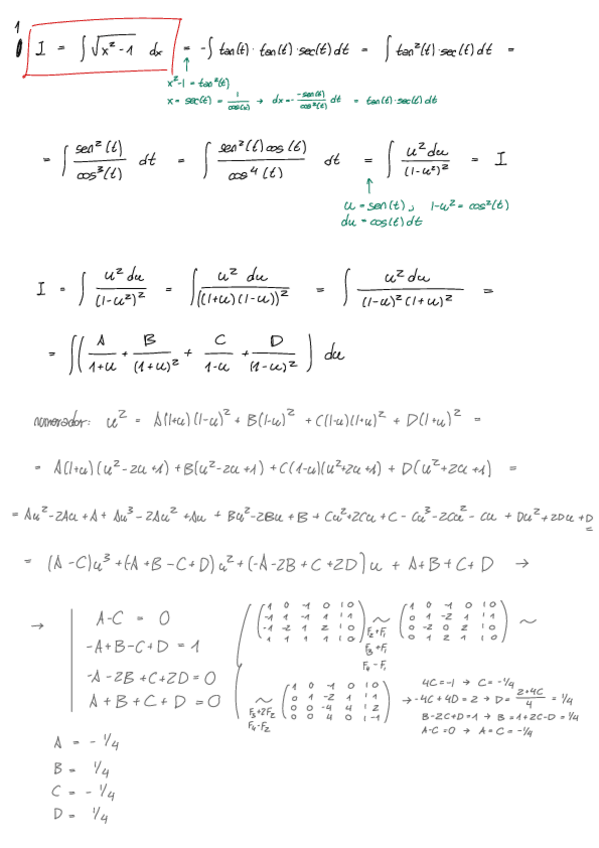 1
I = ∫ √(x² - 1) dx = -∫ tan(t) · tan(t) · sec(t) dt = ∫ tan²(t) · sec(t) dt =
↑
x² - 1 = tan²(t)
x = sec(t) = 1/cos(t) → dx = - -sen(t)/cos²(t) dt = tan(t) · sec(t) dt
= ∫ sen²(t)/cos³(t) dt = ∫ sen²(t) cos(t)/cos⁴(t) dt = ∫ u² du/(1-u²)² = I
↑
u = sen(t), 1-u² = cos²(t)
du = cos(t) dt
I = ∫ u² du/(1-u²)² = ∫ u² du/((1+u)(1-u))² = ∫ u² du/(1-u)²(1+u)² =
= ∫( A/1+u + B/(1+u)² + C/1-u + D/(1-u)² ) du
numerador: u² = A(1+u)(1-u)² + B(1-u)² + C(1-u)(1+u)² + D(1+u)² =
= A(1+u)(u²-2u+1) + B(u²-2u+1) + C(1-u)(u²+2u+1) + D(u²+2u+1) =
= Au²-2Au+A+Au³-2Au²+Au + Bu²-2Bu+B + Cu²+2Cu+C-Cu³-2Cu²-Cu + Du²+2Du+D
= (A-C)u³ + (-A+B-C+D)u² + (-A-2B+C+2D)u + A+B+C+D →
→ A-C = 0
-A+B-C+D = 1
-A-2B+C+2D = 0
A+B+C+D = 0
( 1 0 -1 0 | 0
-1 1 -1 1 | 1
-1 -2 1 2 | 0
1 1 1 1 | 0 ) ~
F₂+F₁
F₃+F₁
F₄-F₁
( 1 0 -1 0 | 0
0 1 -2 1 | 1
0 -2 0 2 | 0
0 1 2 1 | 0 ) ~
~
F₃+2F₂
F₄-F₂
( 1 0 -1 0 | 0
0 1 -2 1 | 1
0 0 -4 4 | 2
0 0 4 0 | -1 )
4C=-1 → C=-1/4
→ -4C+4D=2 → D= 2+4C/4 = 1/4
B-2C+D=1 → B=1+2C-D=1/4
A-C=0 → A=C=-1/4
A = -1/4
B = 1/4
C = -1/4
D = 1/4